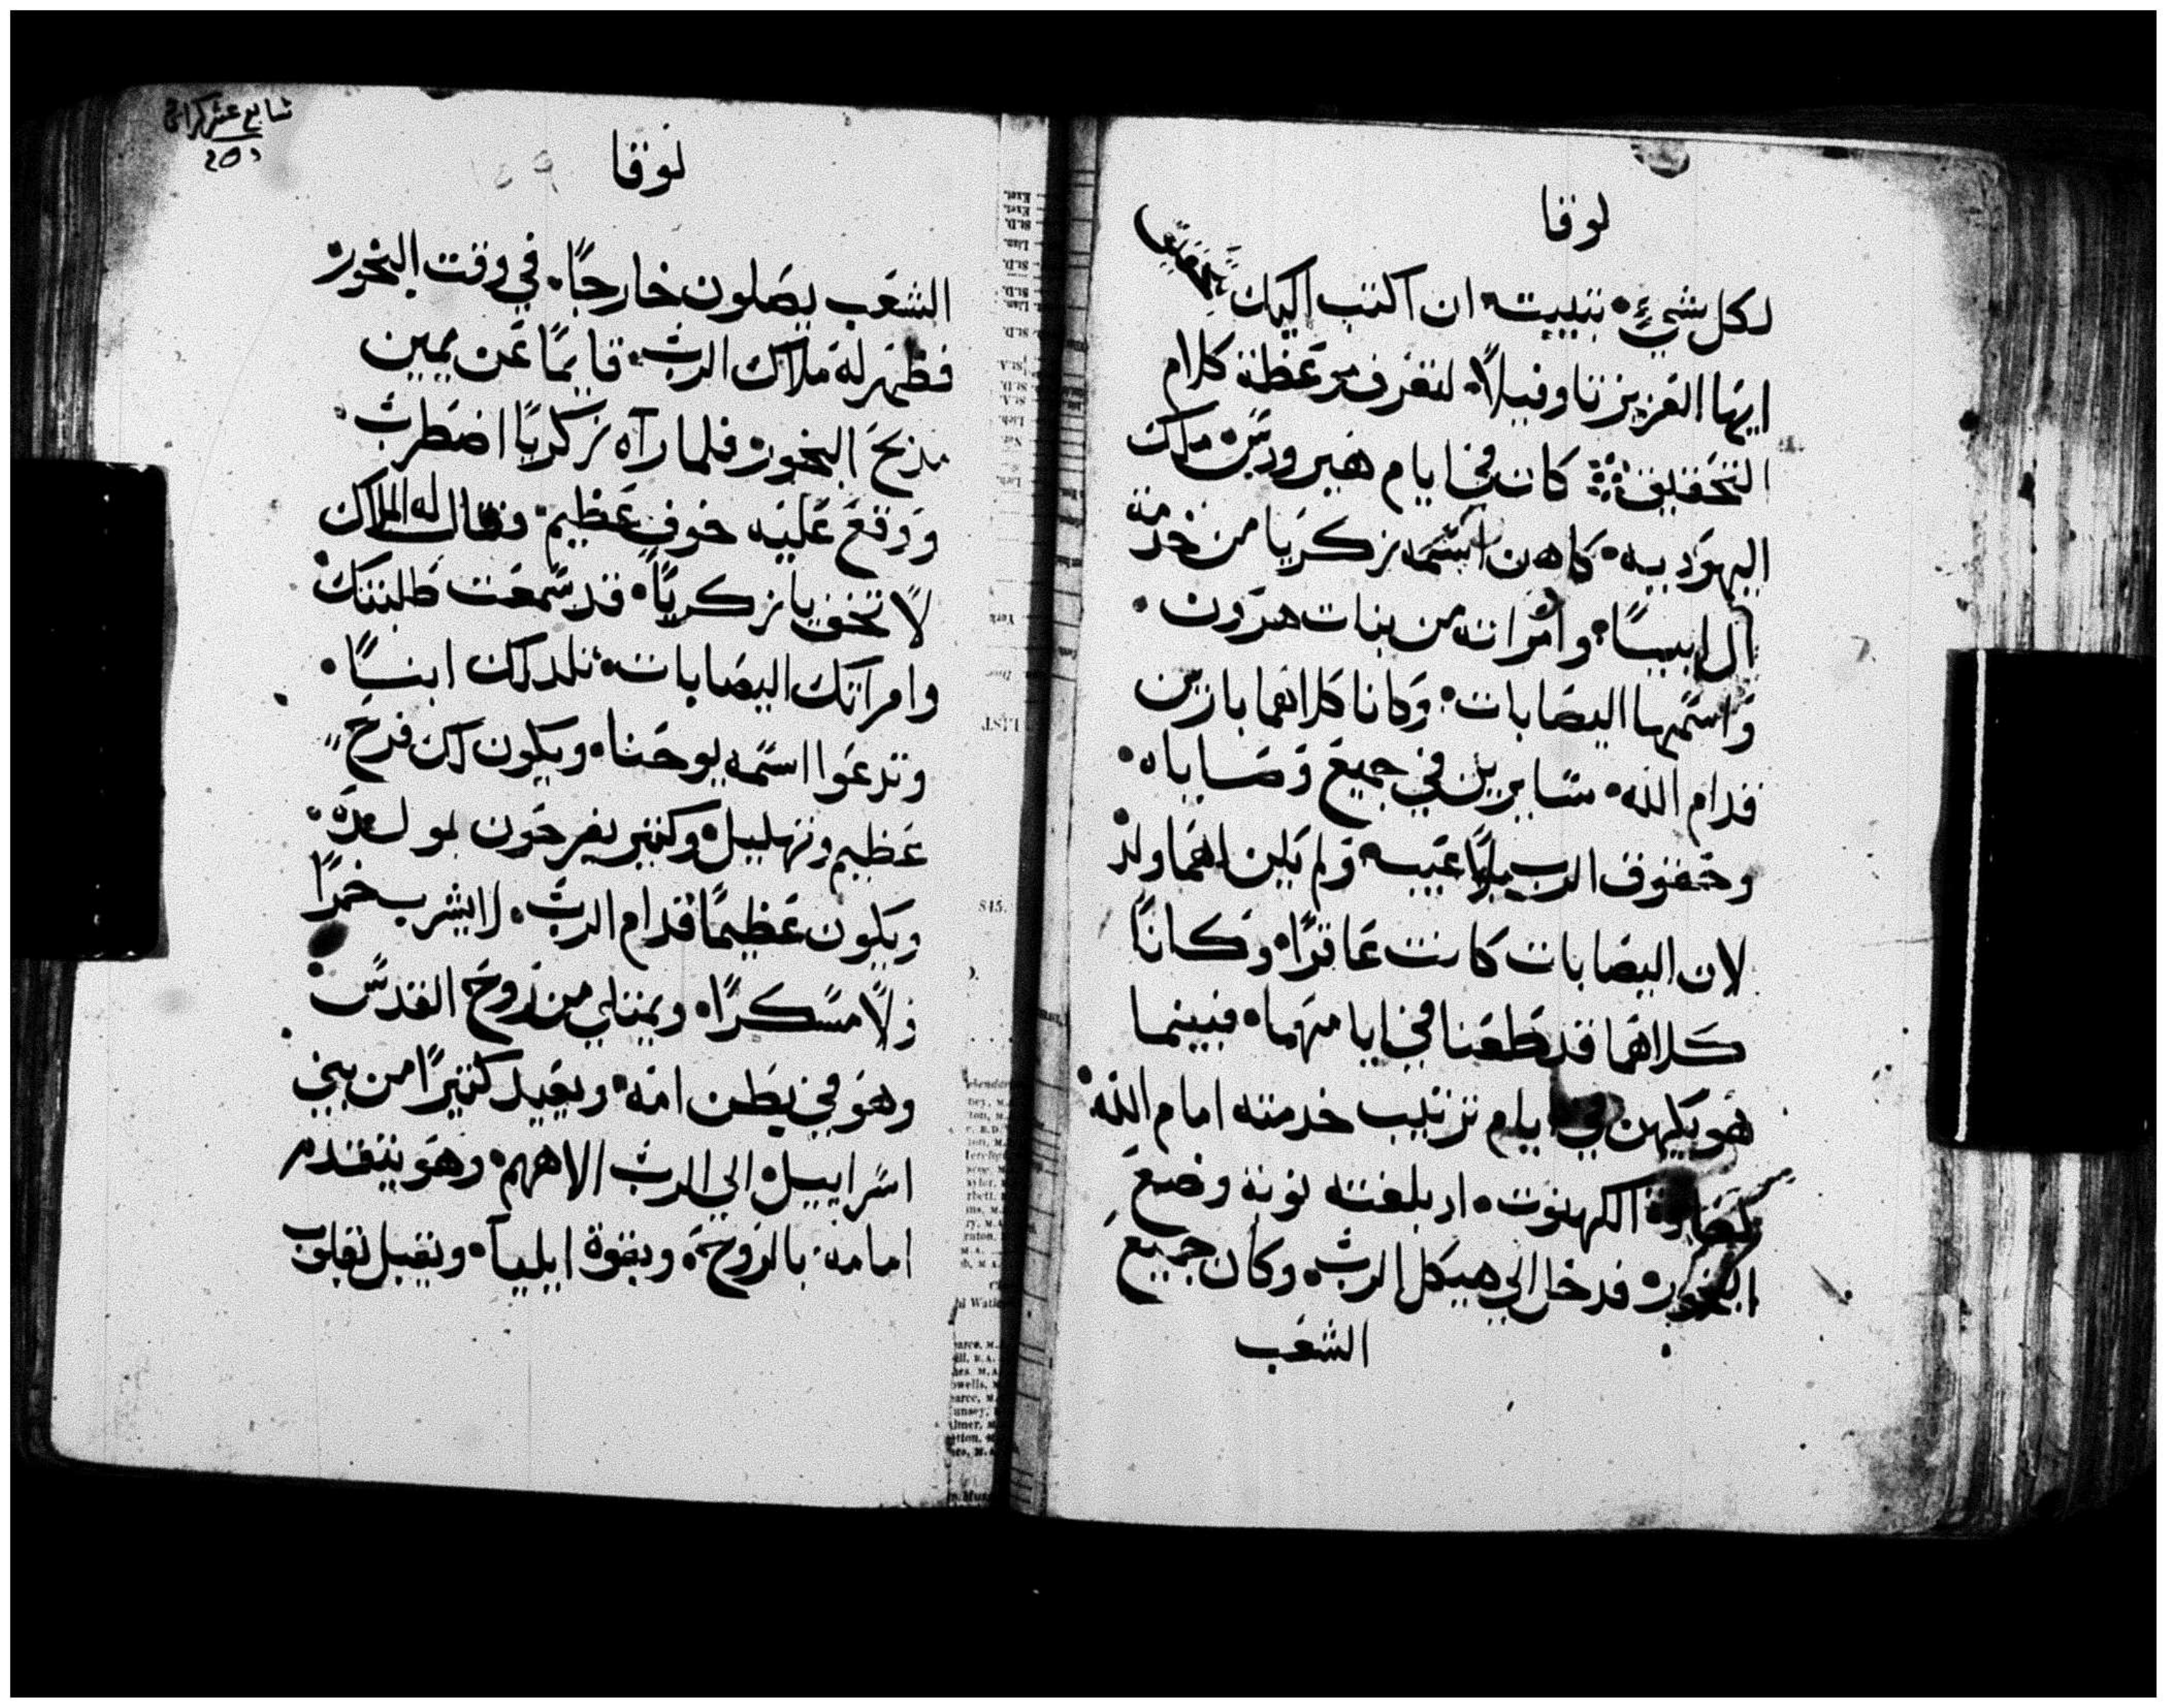 لوقا
لكل شيءٍ بتبيت ان اكتب اليك بتحقيق
ايها العزيز تاوفيلا لتعرف موعظة كلام
التحقيق كان في ايام هيرودس ملك
اليهودية كاهن اسمه زكريا من خدمة
آل ابيا وامراته من بنات هرون
واسمها اليصابات وكانا كلاهما بارين
قدام الله سايرين في جميع وصاياه
وحقوق الرب بلا عيب ولم يكن لهما ولد
لان اليصابات كانت عاقرًا وكانا
كلاهما قد طعنا في ايامهما فبينما
هو يكهن في ايام ترتيب خدمته امام الله
كعادة الكهنوت اد بلغته نوبة وضع
البخور فدخل الي هيكل الرب وكان جميع
الشعب
سابع عشر كراس
لوقا
١٥٩
الشعب يصلون خارجًا في وقت البخور
فظهر له ملاك الرب قايمًا عن يمين
مذبح البخور فلما رآه زكريا اضطرب
ووقع عليه خوف عظيم وقال له الملاك
لا تخف يا زكريا قد سمعت طلبتك
وامراتك اليصابات تلد لك ابنًا
وتدعوا اسمه يوحنا ويكون لك فرح
عظيم وتهليل وكثير يفرحون بمولده
ويكون عظيمًا قدام الرب لا يشرب خمرًا
ولا مسكرًا ويمتلي من روح القدس
وهو في بطن امه ويعيد كثيرًا من بني
اسراييل الي الرب الاههم وهو يتقدم
امامه بالروح وبقوة ايليا ويقبل بقلوب